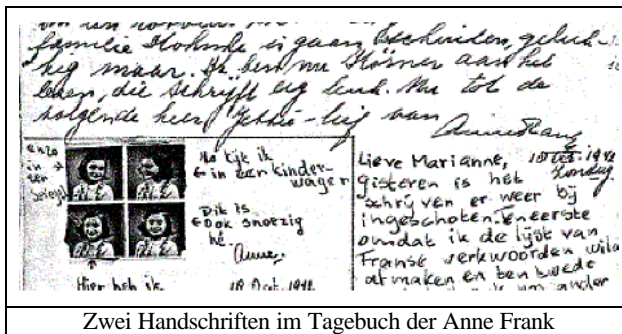 familie is gaan bescheiden, geluk-
kig maar. Ik ben nu aan het
lezen, die schrijft erg leuk. Nu tot de
volgende keer van
Anne Frank
enzo
in
Zo kijk ik
in een kinder-
wagen
Dik is
Ook snoezig
hé.
Anne.
Hier heb ik
18 Oct. 1942
Lieve Marianne, 18 Oct. 1942
Zondag
gisteren is het
schrijven er weer bij
ingeschoten. eneerste
omdat ik de lijst van
Franse werkwoorden wilde
afmaken en ten twede
ander
Zwei Handschriften im Tagebuch der Anne Frank